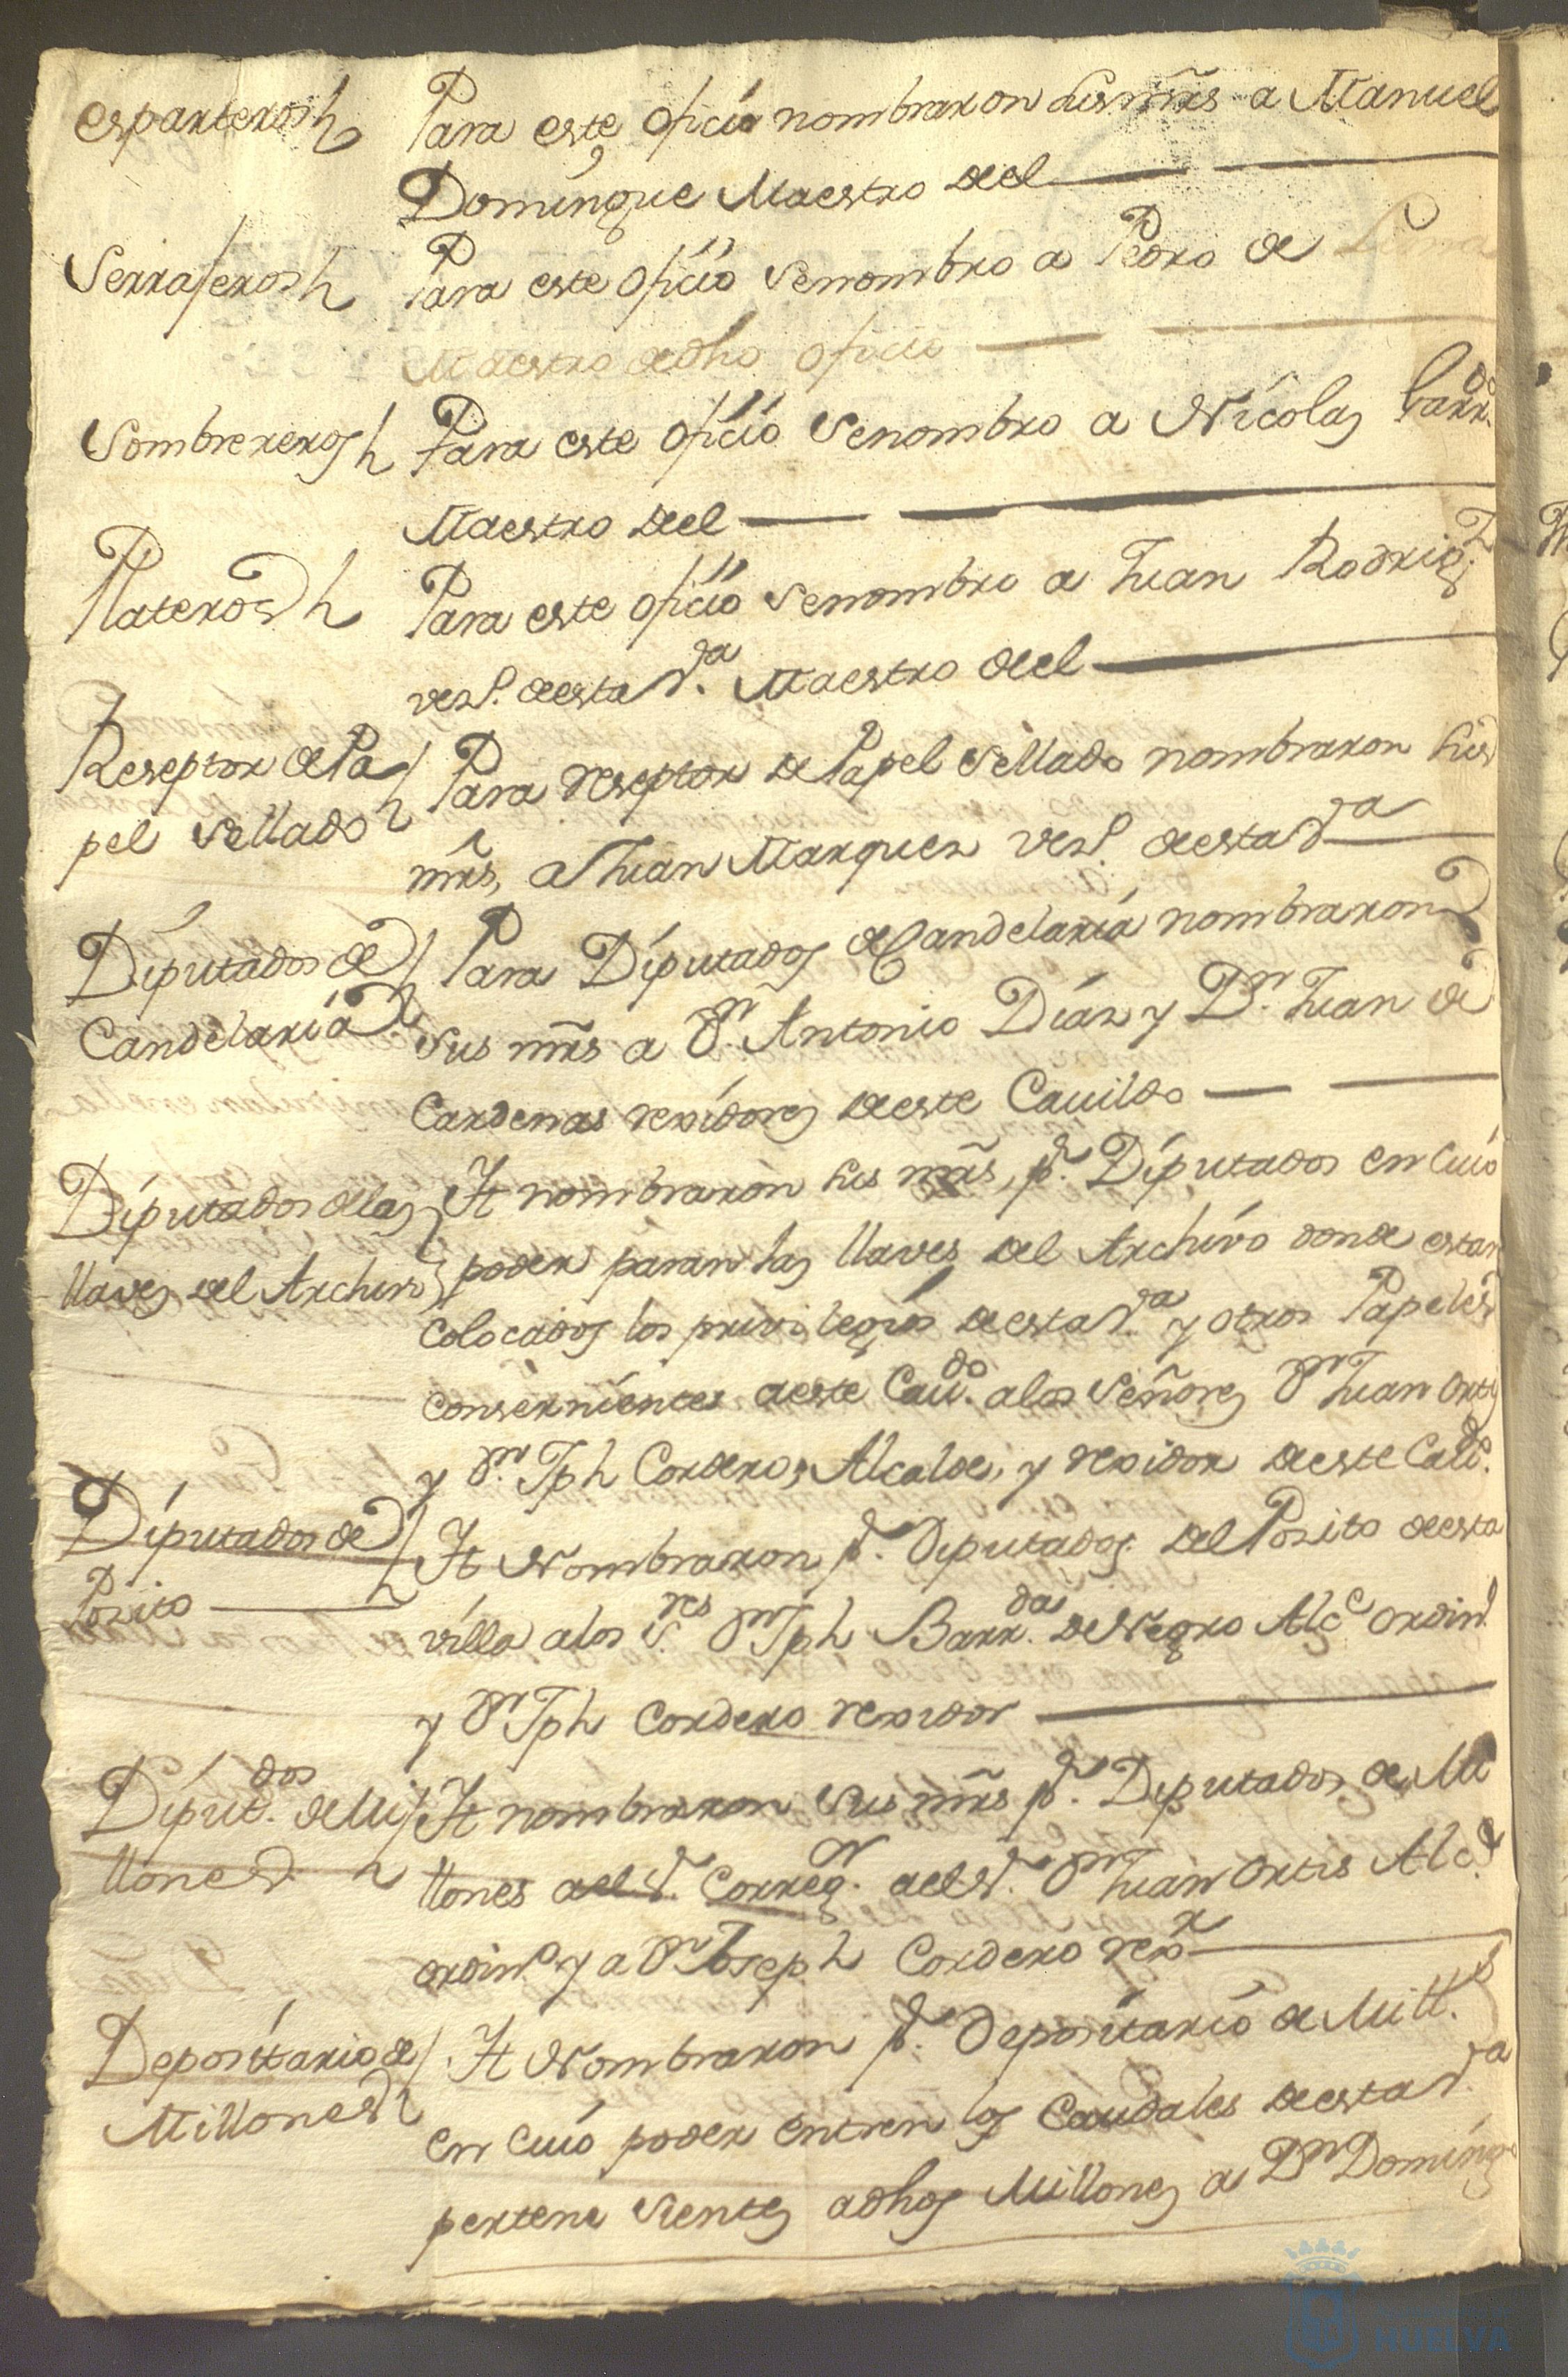 esparteros
Para este oficio nombraron sus mrs̃ a Manuel
Domingue Maestro del
Serrajeros
Para este oficio senombro a Pedro de Lema
Maestro dedho oficio
Sombrereros
Para este oficio senombro a Nicolas Barr.do
Maestro del
Plateros
Para este oficio senombro a Juan Rodrig.z
vesº. desta V.a Maestro del
Reseptor de Pa
pel Sellado
Para reseptor de Papel Sellado nombraron sus
mrs̃, a Juan Marques vesº. desta Va
Diputados de
Candelaria
Para Diputados de Candelaria nombraron
sus mrs̃ a Dn. Antonio Dias y Dn. Juan de
Cardenas rexidores deste Cauildo
Diputados de las
llaves del Archivo
It nombraron sus mrs̃, pr. Diputados en cuio
poder paran las llaves del Archivo donde estan
colocados los privilegios desta V.a y otros Papeles
conservnientes aeste Cau.do alos Señores Dn Juan Ortis
y Dn. Jph Cordero, Alcalde, y rexidor deste Cabº.
Diputados de
Posito
It Nombraron pr. Diputados del Posito desta
villa alos S.res Dn Jph Barr.das de Negro Alce ordinº
y Dn Jph Cordero rexidor
Diput.dos de Mi
llones
It nombraron sus mrs̃ pr. Diputados de Mi
llones ael Sr. Correg.or ael Sr. Dn Juan Ortis Alc.e
ordinº y a Dn Joseph Cordero rexr
Depositario de
Millones
It Nombraron pr. Depositario de Mill.s
en cuio poder entren los Caudales desta Va
pertene sientes adhos Millones a Dn Doming
HUELVA